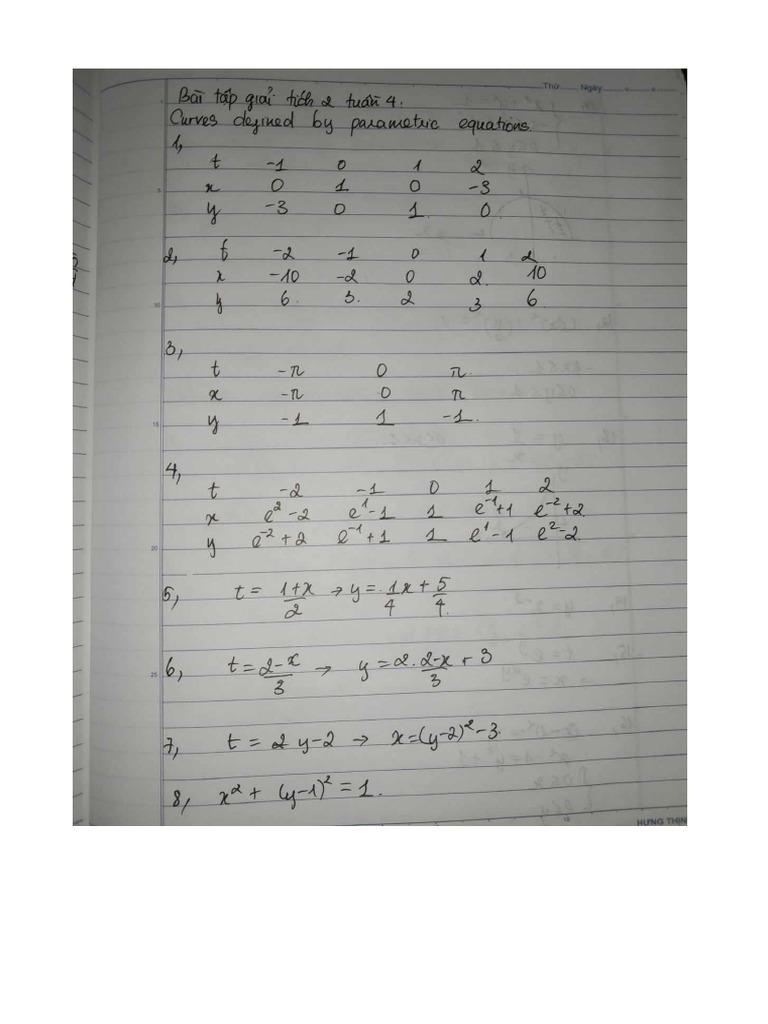 Thứ Ngày
Bài tập giải tích 2 tuần 4.
Curves defined by parametric equations.
1,
t -1 0 1 2
x 0 1 0 -3
y -3 0 1 0
2, t -2 -1 0 1 2
x -10 -2 0 2 10
y 6 3 2 3 6
3,
t -π 0 π
x -π 0 π
y -1 1 -1
4,
t -2 -1 0 1 2
x e²-2 e¹-1 1 e⁻¹+1 e⁻²+2
y e⁻²+2 e⁻¹+1 1 e¹-1 e²-2
5, t = (1+x)/2 → y = 1/4 x + 5/4
6, t = (2-x)/3 → y = 2. (2-x)/3 + 3
7, t = 2 y-2 → x=(y-2)²-3
8, x² + (y-1)² = 1.
5
10
15
20
25
HƯNG THỊN